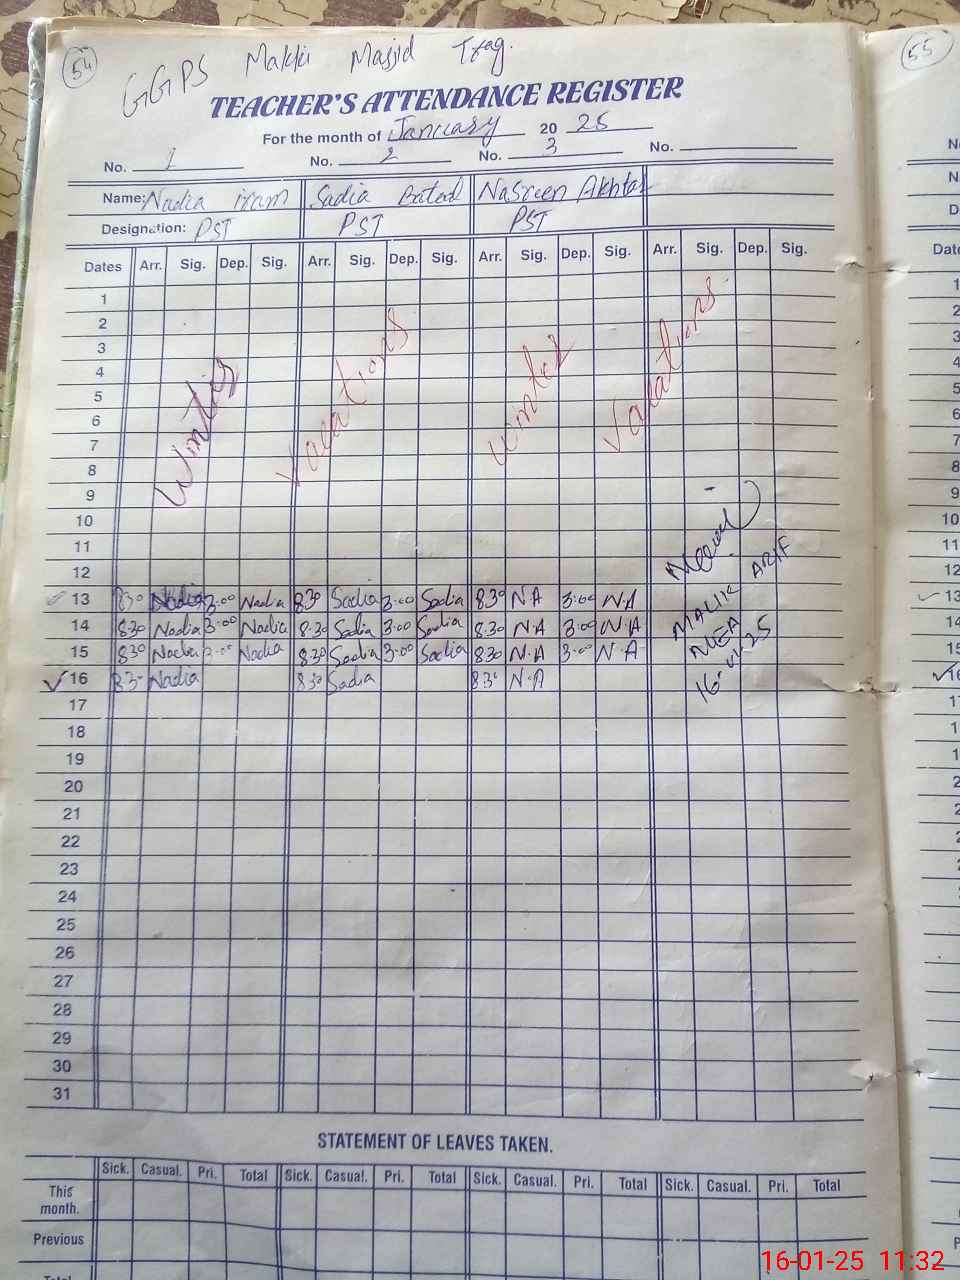 54 GGPS Makki Masjid Trag. 55
TEACHER'S ATTENDANCE REGISTER
For the month of January 20 25
No. 1 No. 2 No. 3 No.
Name: Nadia iram Sadia Batool Nasreen Akhtar
Designation: PST PST PST
Dates Arr. Sig. Dep. Sig. Arr. Sig. Dep. Sig. Arr. Sig. Dep. Sig. Arr. Sig. Dep. Sig.
1
2
3
4
5
6
7
8
9
10
11
12
Winter Vacations Winter Vacations
13 830 Nadia 3:00 Nadia 830 Sadia 3:00 Sadia 830 N A 3:00 N.A
14 8:30 Nadia 3:00 Nadia 8:30 Sadia 3:00 Sadia 8:30 N.A 3:00 N.A
15 830 Nadia 3:00 Nadia 830 Sadia 3:00 Sadia 830 N.A 3:00 N.A
16 830 Nadia 830 Sadia 830 N.A
MALIK ARIF
MEA
16-01-25
17
18
19
20
21
22
23
24
25
26
27
28
29
30
31
STATEMENT OF LEAVES TAKEN.
Sick. Casual. Pri. Total Sick. Casual. Pri. Total Sick. Casual. Pri. Total Sick. Casual. Pri. Total
This month.
Previous
Total
16-01-25 11:32